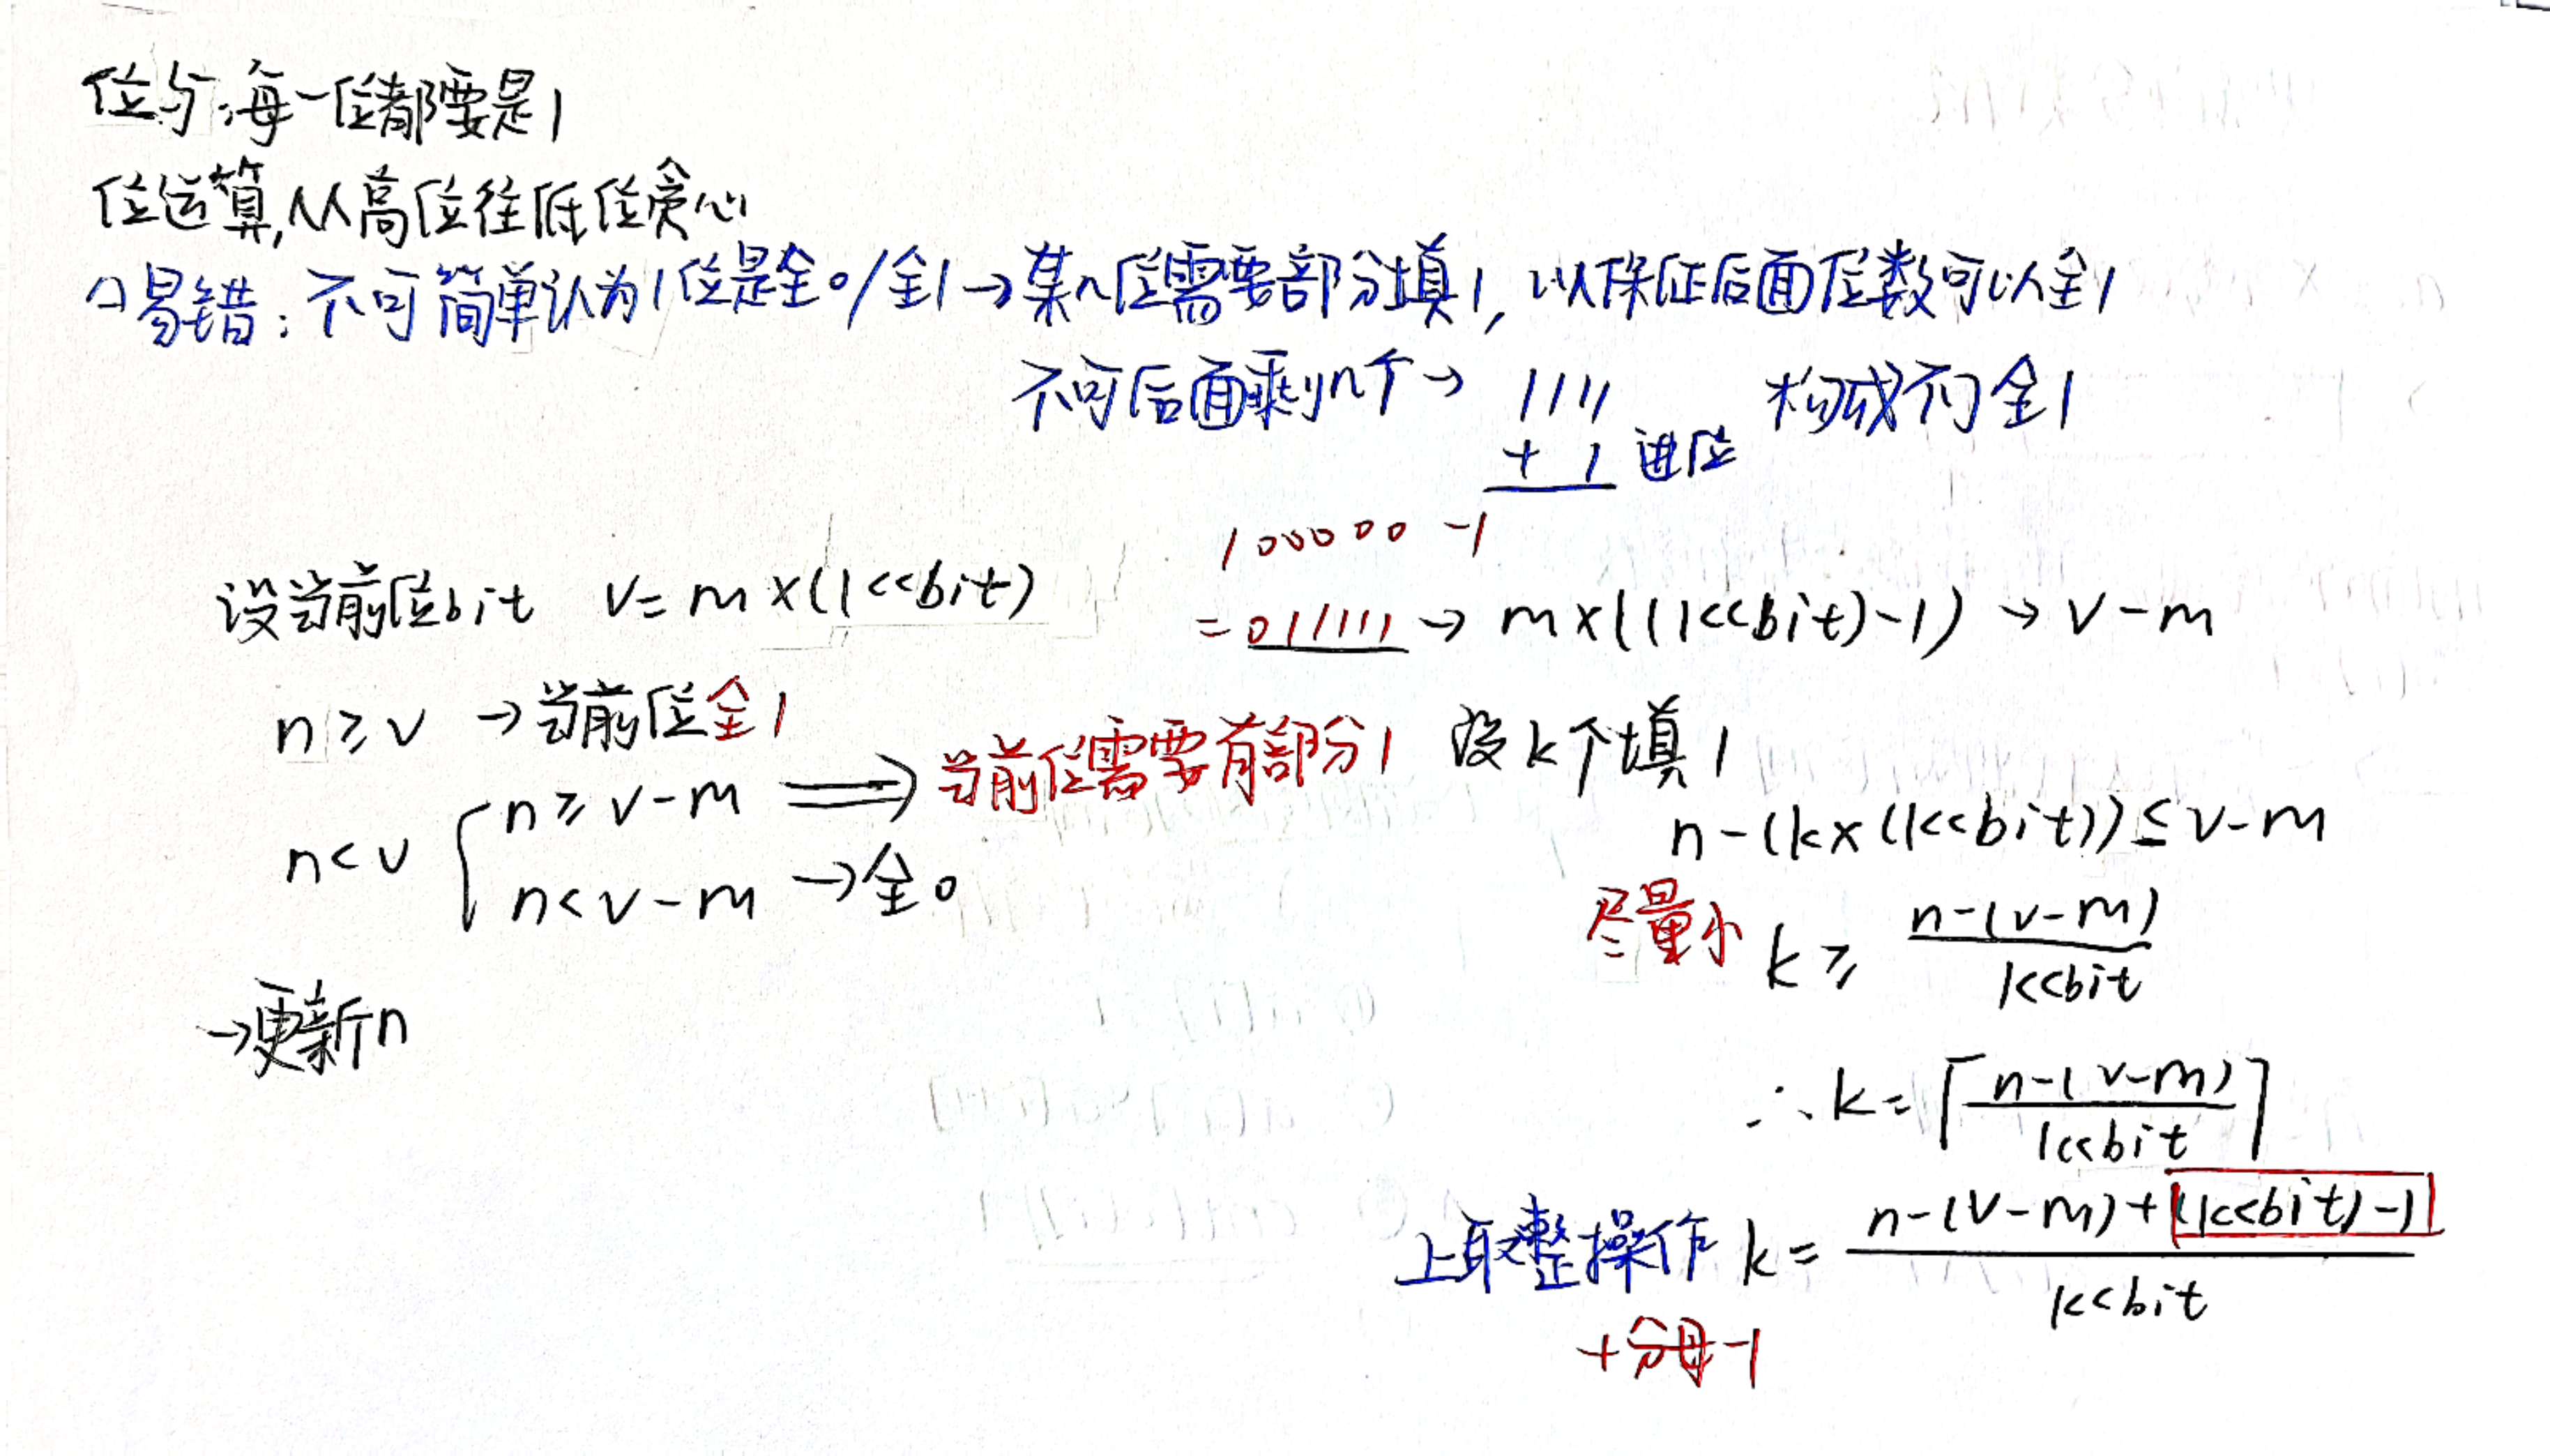 位与:每一位都要是1
位运算,从高位往低位贪心
易错:不可简单认为1位是全0/全1→某n位需要部分填1,以保证后面位数可以全1
不可后面剩n个→ 1111 构成不了全1
+ 1 进位
100000 -1
设当前位bit V=m×(1<<bit)
=011111→m×((1<<bit)-1)→V-m
n≥V→当前位全1
n<V
n≥V-m ⟹ 当前位需要有部分1 设k个填1
n<V-m→全0
n-(k×(1<<bit))≤V-m
尽量小 k≥ n-(V-m) / 1<<bit
→更新n
∴k=⌈ n-(V-m) / 1<<bit ⌉
上取整操作 k= n-(V-m)+((1<<bit)-1) / 1<<bit
+分母-1